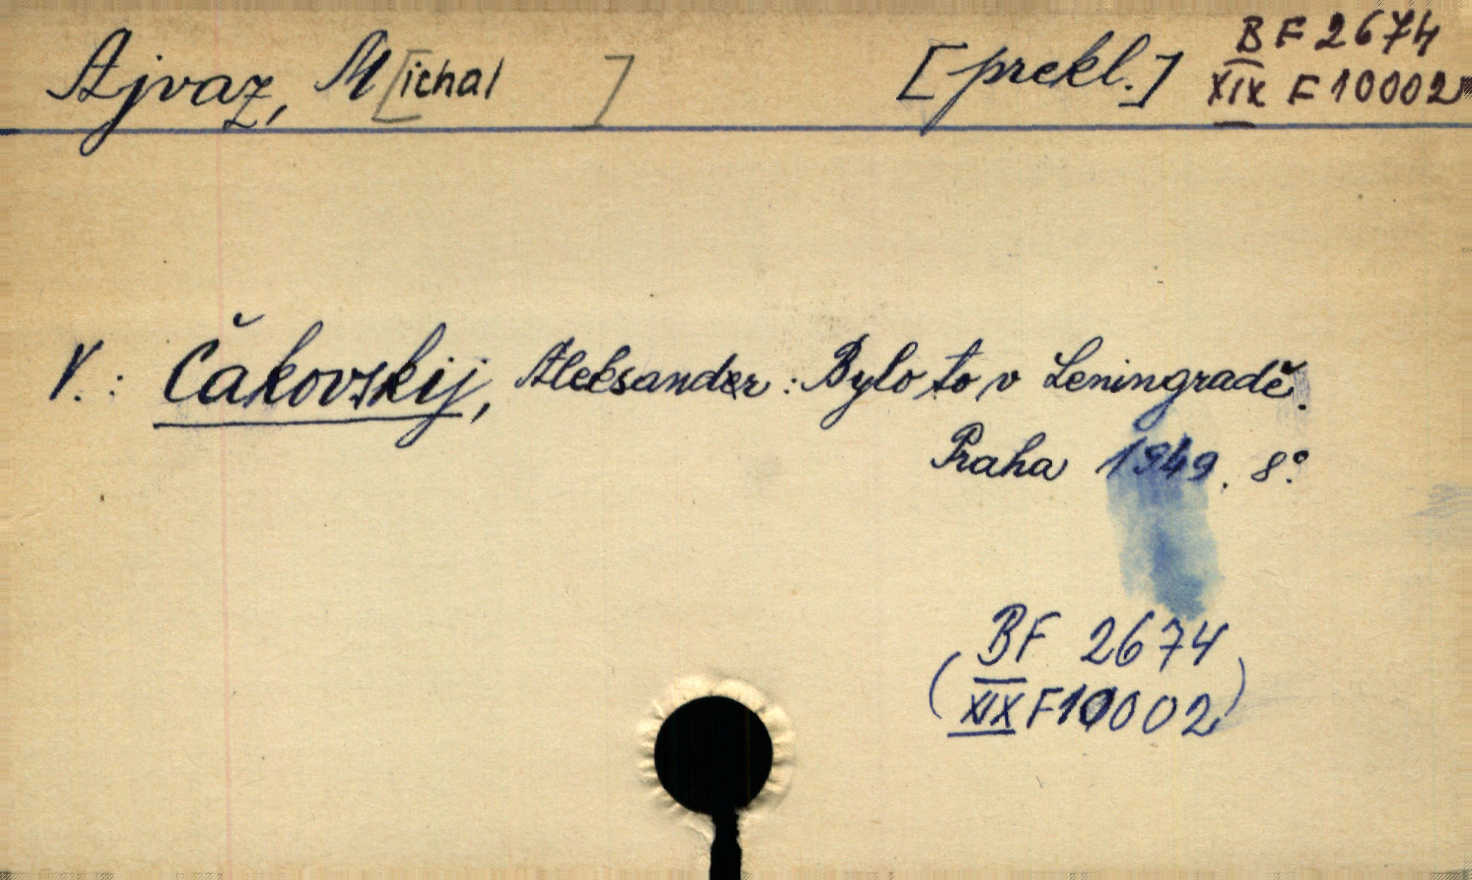 Ajvaz, M[ichal ] [prekl.] BF 2674
XIX F 10002
V.: Čakovskij, Aleksander: Bylo to v Leningradě.
Praha 1949. 8°.
BF 2674
(XIX F10002)